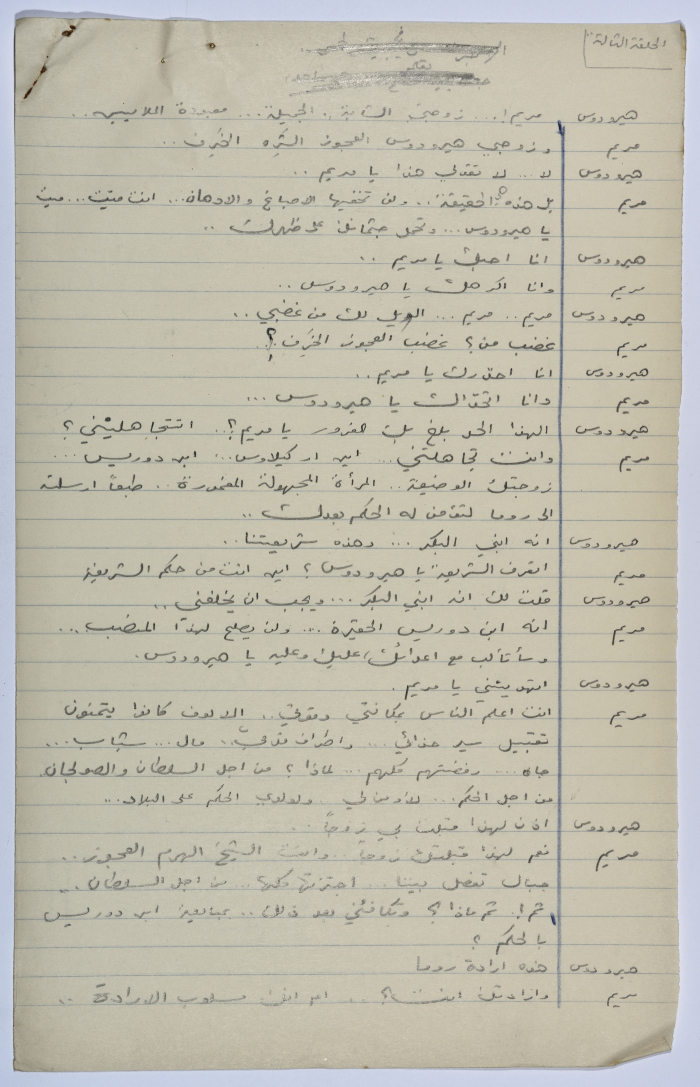 الحلقة الثالثة
بقلم
هيرودوس مريم!... زوجتي الشابة.. الجميلة... معبودة الملايين..
مريم وزوجي هيرودوس العجوز الشره الخَرِف..
هيرودوس لا... لا تقولي هذا يا مريم..
مريم بل هذه هي الحقيقة.. ولن تخفيها الاصباغ والادهان... انت ميت... ميت
يا هيرودوس... وتحمل جثمانك على ظهرك..
هيرودوس انا احبك يا مريم..
مريم وانا اكرهك يا هيرودوس..
هيرودوس مريم.. مريم... الويل لك من غضبي..
مريم غضب من؟ غضب العجوز الخَرِف؟!
هيرودوس انا احذرك يا مريم..
مريم وانا اتحداك يا هيرودوس...
هيرودوس ألهذا الحد بلغ بك الغرور يا مريم؟.. اتتجاهلينني؟
مريم وانت تجاهلتني... اين اركيلاوس... ابن دوريس...
زوجتك الوضيعة.. المرأة المجهولة المغمورة.. طبعاً ارسلته
الى روما لتؤمن له الحكم بعدك..
هيرودوس انه ابني البكر... وهذه شريعتنا..
مريم اتعرف الشريعة يا هيرودوس؟ اين انت من حكم الشريعة
هيرودوس قلت لك انه ابني البكر... ويجب ان يخلفني..
مريم انه ابن دوريس الحقيرة... ولن يصلح لهذا المنصب...
وسأتألب مع اعدائك عليك وعليه يا هيرودوس.
هيرودوس اتهدديني يا مريم.
مريم انت اعلم الناس بمكانتي وقوتي.. الالوف كانوا يتمنون
تقبيل سير حذائي... واطراف ثوبي.. مال... شباب...
جاه... رفضتهم كلهم... لماذا؟ من اجل السلطان والصولجان.
من اجل الحكم... لأؤمن لي ولولدي الحكم على البلاد...
هيرودوس اذن لهذا قبلت بي زوجاً...
مريم نعم لهذا قبلتك زوجاً.. وانت الشيخ الهرم العجوز..
جبال تفصل بيننا... اجتزتها كلها... من اجل السلطان..
ثم!. ثم ماذا؟! وتكافئني بعد ذلك.. بمبايعة ابن دوريس
بالحكم؟
هيرودوس هذه ارادة روما
مريم وارادتك انت؟!... ام انك مسلوب الارادة..